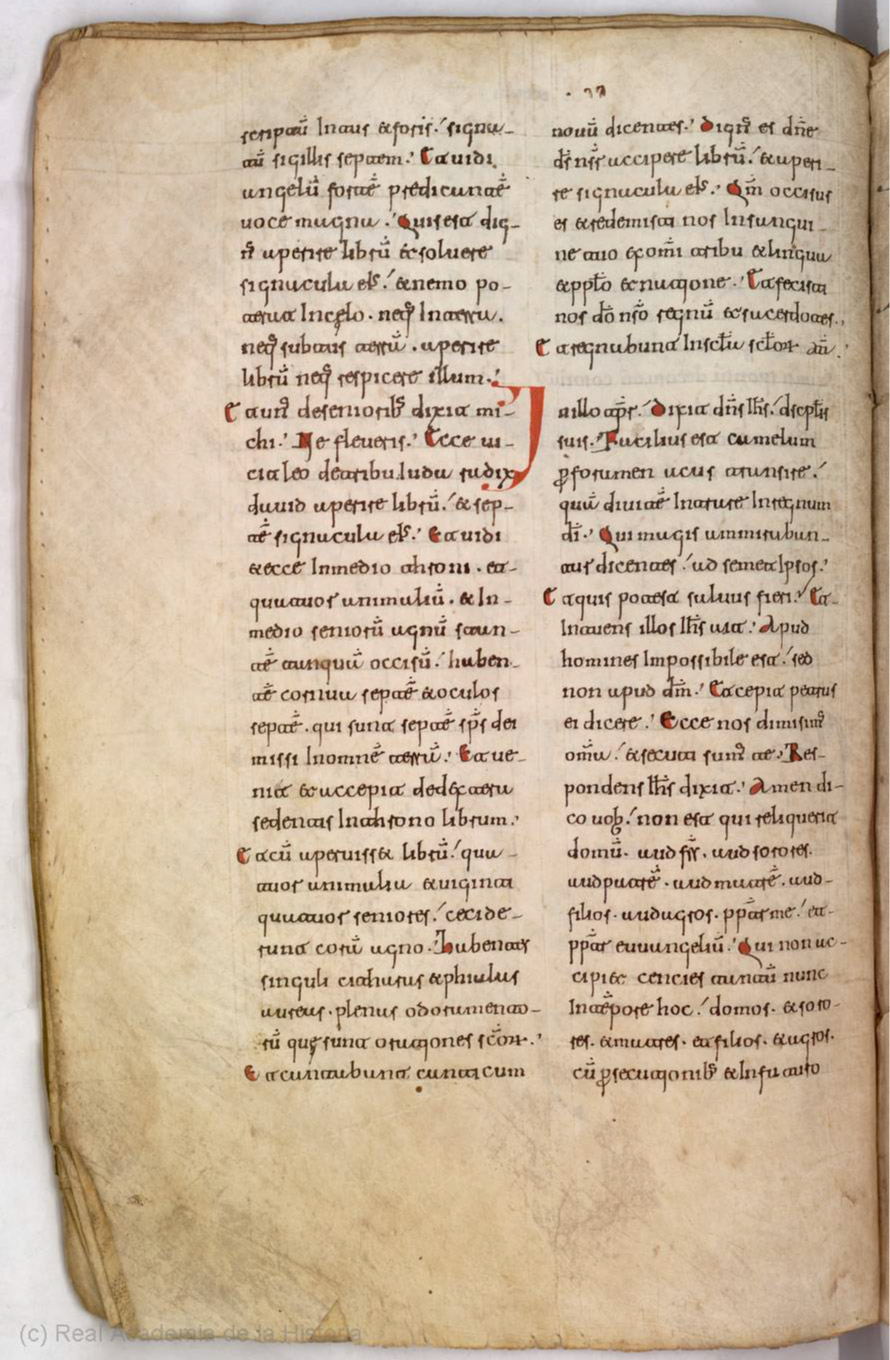 scriptũ Intus & foris. signa-
tũ sigillis septem. Et uidi
angelũ fortẽ predicantẽ
uoce magna. Quis est dig-
nˢ aperire librũ & soluere
signacula eiˢ. & nemo po-
terat In cęlo. neqˢ In terra.
neqˢ subtus terrã. aperire
librũ neqˢ respicere illum.
Et unˢ de seniorібˢ dixit mi-
chi. Ne fleueris. Ecce ui-
cit leo de tribu Iuda radix
dauid aperire librũ. & sep-
tẽ signacula eiˢ. Et uidi
& ecce In medio throni. et
quatuor animaliũ. & In
medio seniorũ agnũ stan-
tẽ tanquã occisũ. haben-
tẽ cornua septẽ & oculos
septẽ. qui sunt septẽ sp̃s dei
missi In omnẽ terrã. Et ue-
nit & accepit de dextera
sedentis In throno librum.
Et cũ aperuiss& librũ. qua-
tuor animalia & uiginti
quatuor seniores. cecide-
runt corã agno. Habentes
singuli citharas & phialas
aureas. plenas odoramento-
rũ quę sunt orationes scõr.
Et cantabant canticum
. 37
nouũ dicentes. Dignˢ es dñe
ds̃ nsr̃ accipere librũ. & aperi-
re signacula eiˢ. Qm̃ occisus
es & redemisti nos In sangui-
ne tuo ex om̃i tribu & lingua
& pplõ & natione. Et fecisti
nos dõ nrõ regnũ & sacerdotes.
Et regnabunt In scl̃a sclor̃ am̃.
In illo tpr̃e. Dixit dñs ihs̃. discplĩs
suis. Facilius est camelum
ꝑ foramen acus transire.
quã diuitẽ Intrare In regnum
dĩ. Qui magis ammiraban-
tur dicentes. ad semet Ipsos.
Et quis potest saluus fieri. Et
Intuens illos ihs̃ ait. Apud
homines Impossibile est. sed
non apud dm̃. Et cepit petrus
ei dicere. Ecce nos dimisimˢ
om̃a. & secuti sumˢ te. Res-
pondens ihs̃ dixit. Amen di-
co uob. non est qui reliquerit
domũ. aud frs̃. aud sorores.
aud patrẽ. aud matrẽ. aud
filios. aud agros. ppter me. et
ppter euuangeliũ. Qui non ac-
cipi& cencies tantũ nunc
In tẽpore hoc. domos. & soro-
res. & matres. et filios. & agros.
cũ ꝑsecutionibˢ & In futuro
(c) Real Academia de la Historia